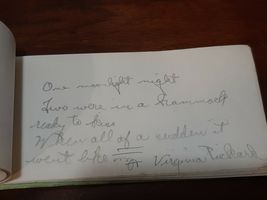 One moonlight night
Two were in a hammock
ready to kiss
When all of a sudden it
went like
Virginia